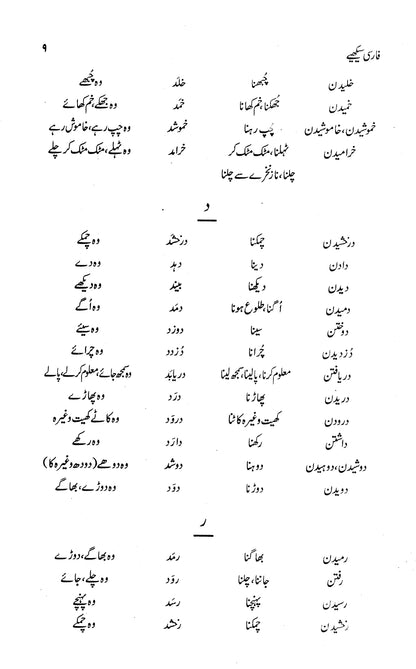 فارسی سیکھیے ۹
خلیدن چُبھنا خلَد وہ چُبھے
خمیدن جُھکنا، خم کھانا خمَد وہ جھکے، خم کھائے
خموشیدن، خاموشیدن چُپ رہنا خموشد وہ چپ رہے، خاموش رہے
خرامیدن ٹہلنا، مٹک مٹک کر خرامد وہ ٹہلے، مٹک مٹک کر چلے
چلنا، ناز نخرے سے چلنا
د
درخشیدن چمکنا درخشَد وہ چمکے
دادن دینا دہد وہ دے
دیدن دیکھنا بیند وہ دیکھے
دمیدن اُگنا، طلوع ہونا دمَد وہ اُگے
دوختن سینا دوزد وہ سیئے
دُزدیدن چُرانا دُزدد وہ چُرائے
دریافتن معلوم کرنا، پالینا، سمجھ لینا دریابَد وہ سمجھ جائے، معلوم کرلے، پالے
دریدن پھاڑنا درَد وہ پھاڑے
درودن کھیت وغیرہ کاٹنا دروَد وہ کاٹے کھیت وغیرہ
داشتن رکھنا دارَد وہ رکھے
دوشیدن، دوہیدن دوہنا دوشد وہ دوہے (دودھ وغیرہ کا)
دویدن دوڑنا دوَد وہ دوڑے، بھاگے
ر
رمیدن بھاگنا رمَد وہ بھاگے، دوڑے
رفتن جانا، چلنا روَد وہ چلے، جائے
رسیدن پہنچنا رسَد وہ پہنچے
رخشیدن چمکنا رخشد وہ چمکے